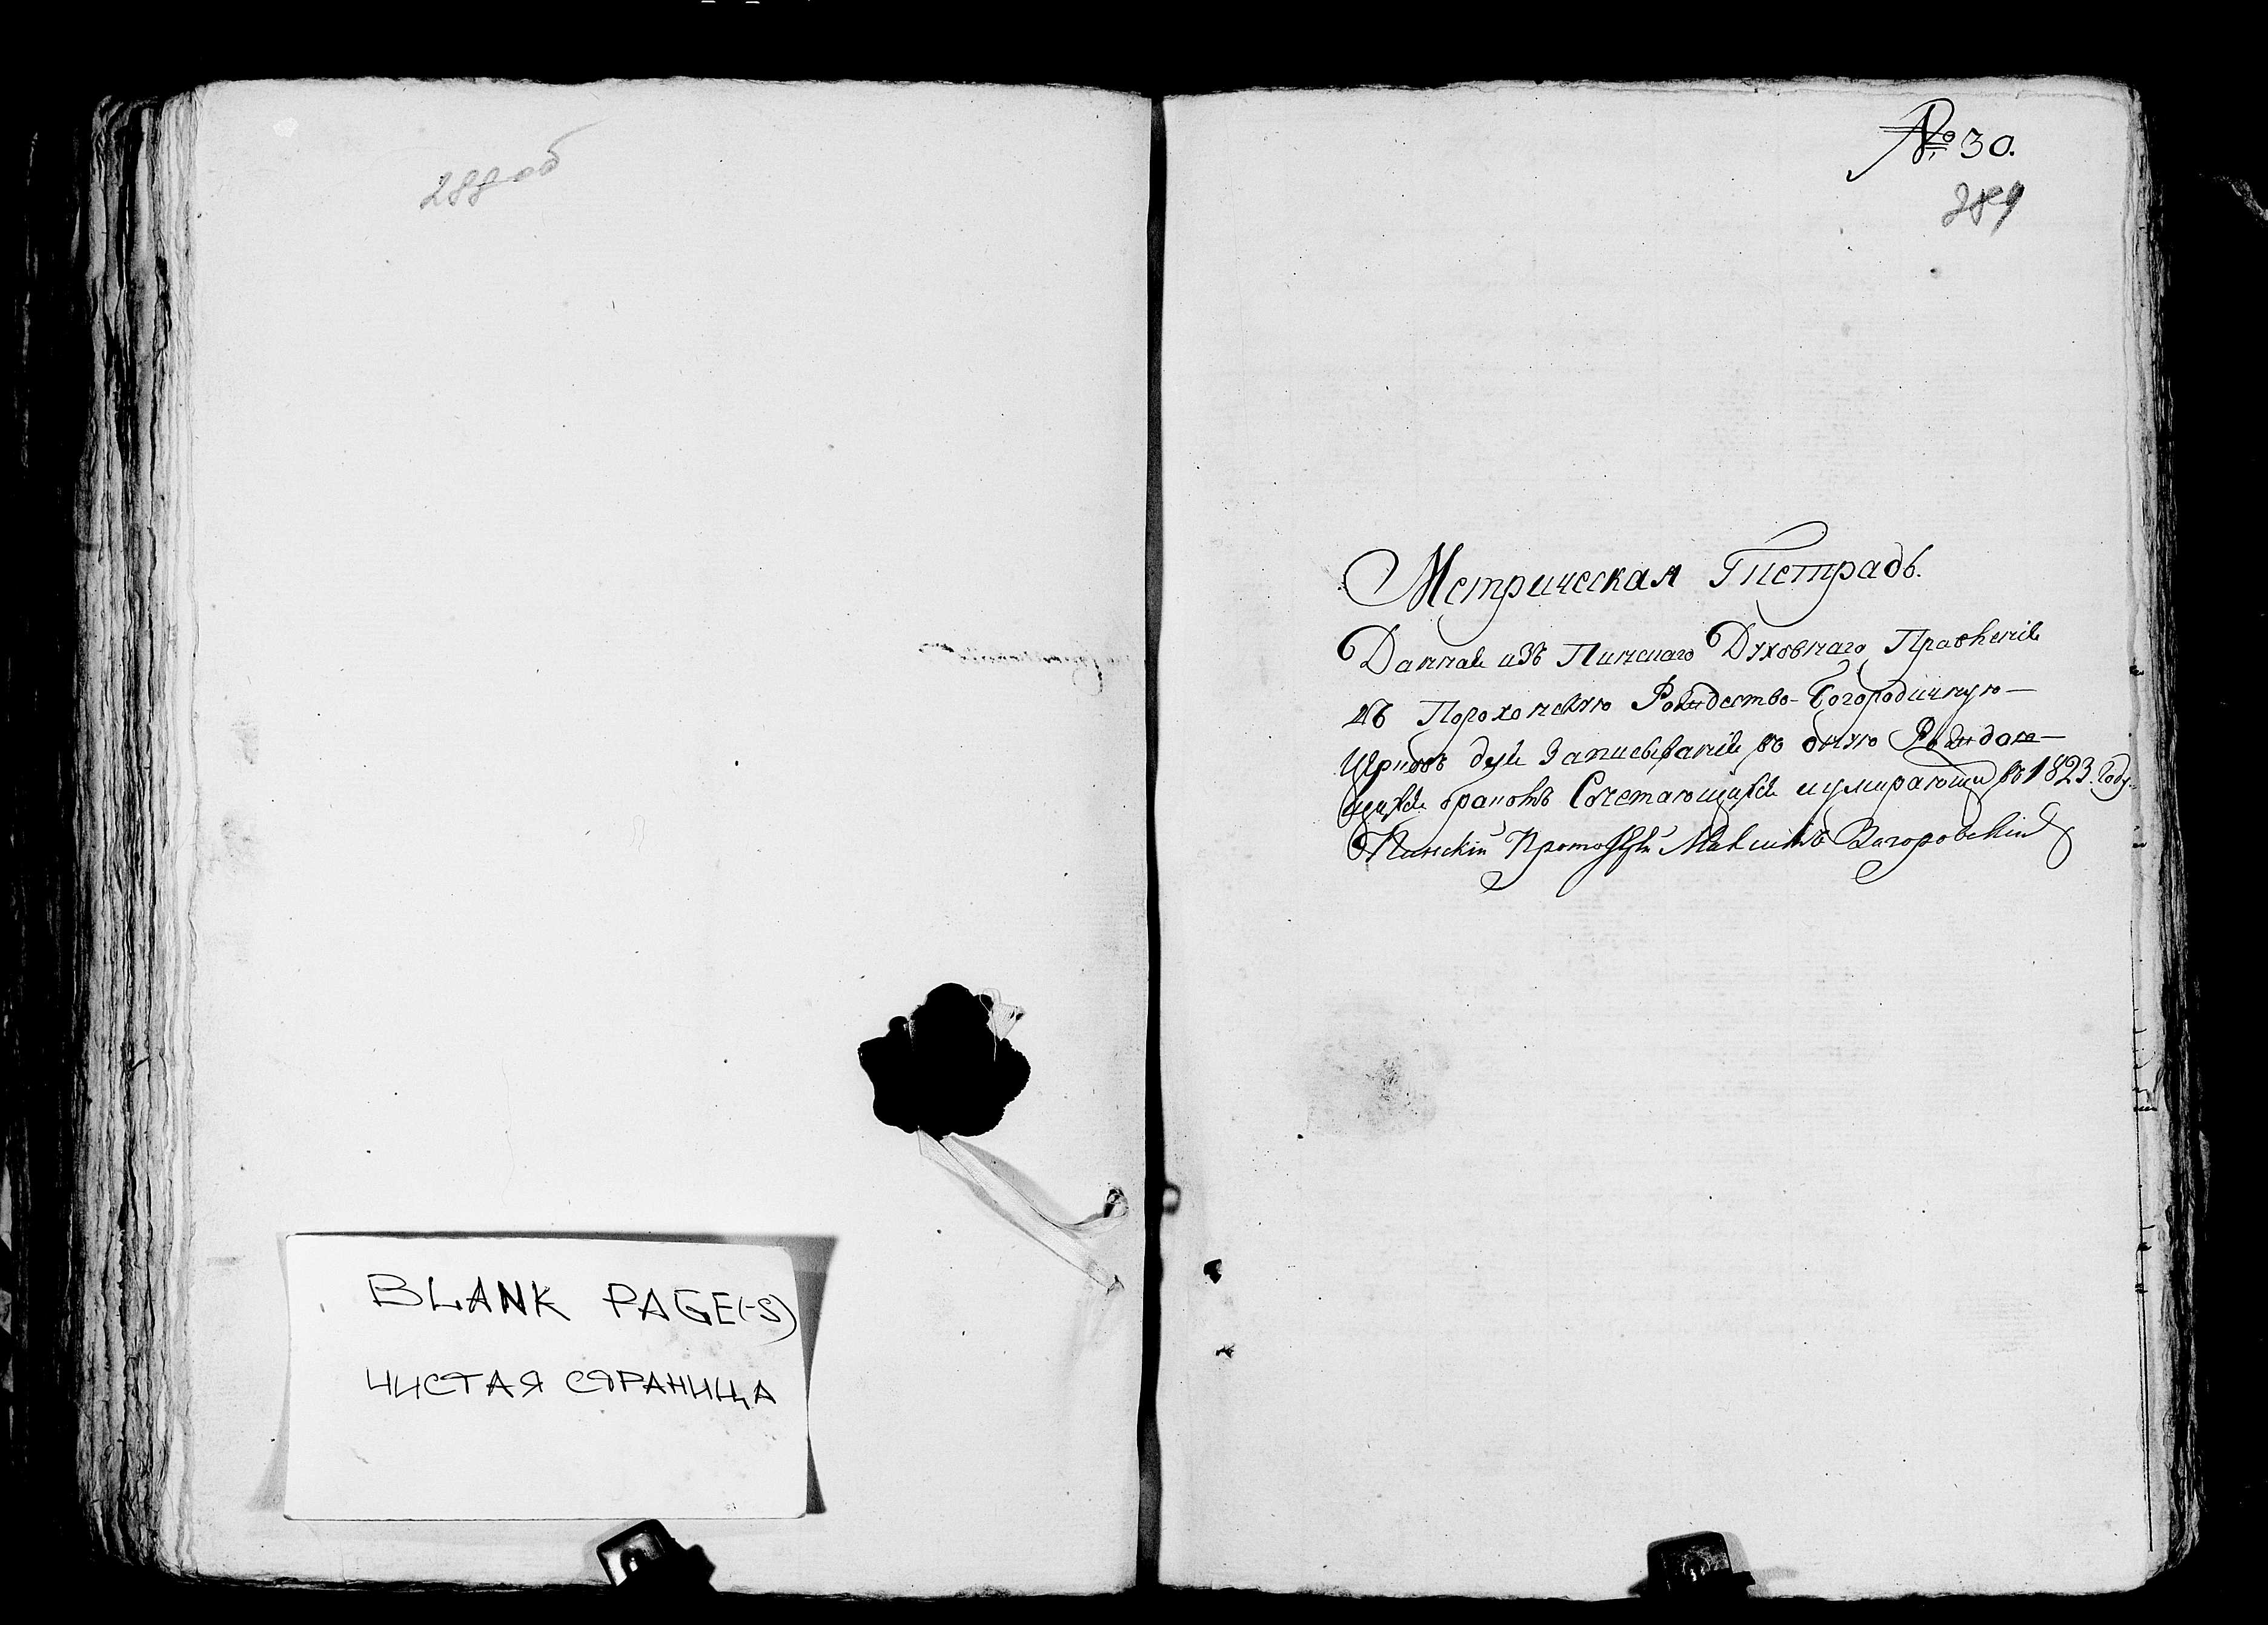 288об
BLANK PAGE(-S)
ЧИСТАЯ СТРАНИЦА
№ 30.
289
Метрическая Тетрадь.
Данная изъ Пинскаго Духовнаго Правленія
въ Порохонскую Рождество-Богородичную
Церковь для Записыванія въ оную Раждаю-
щихся браком Сочетающихся и умирающи въ 1823. Году.
Пинскій Протоіерей Максимъ Загоровскій